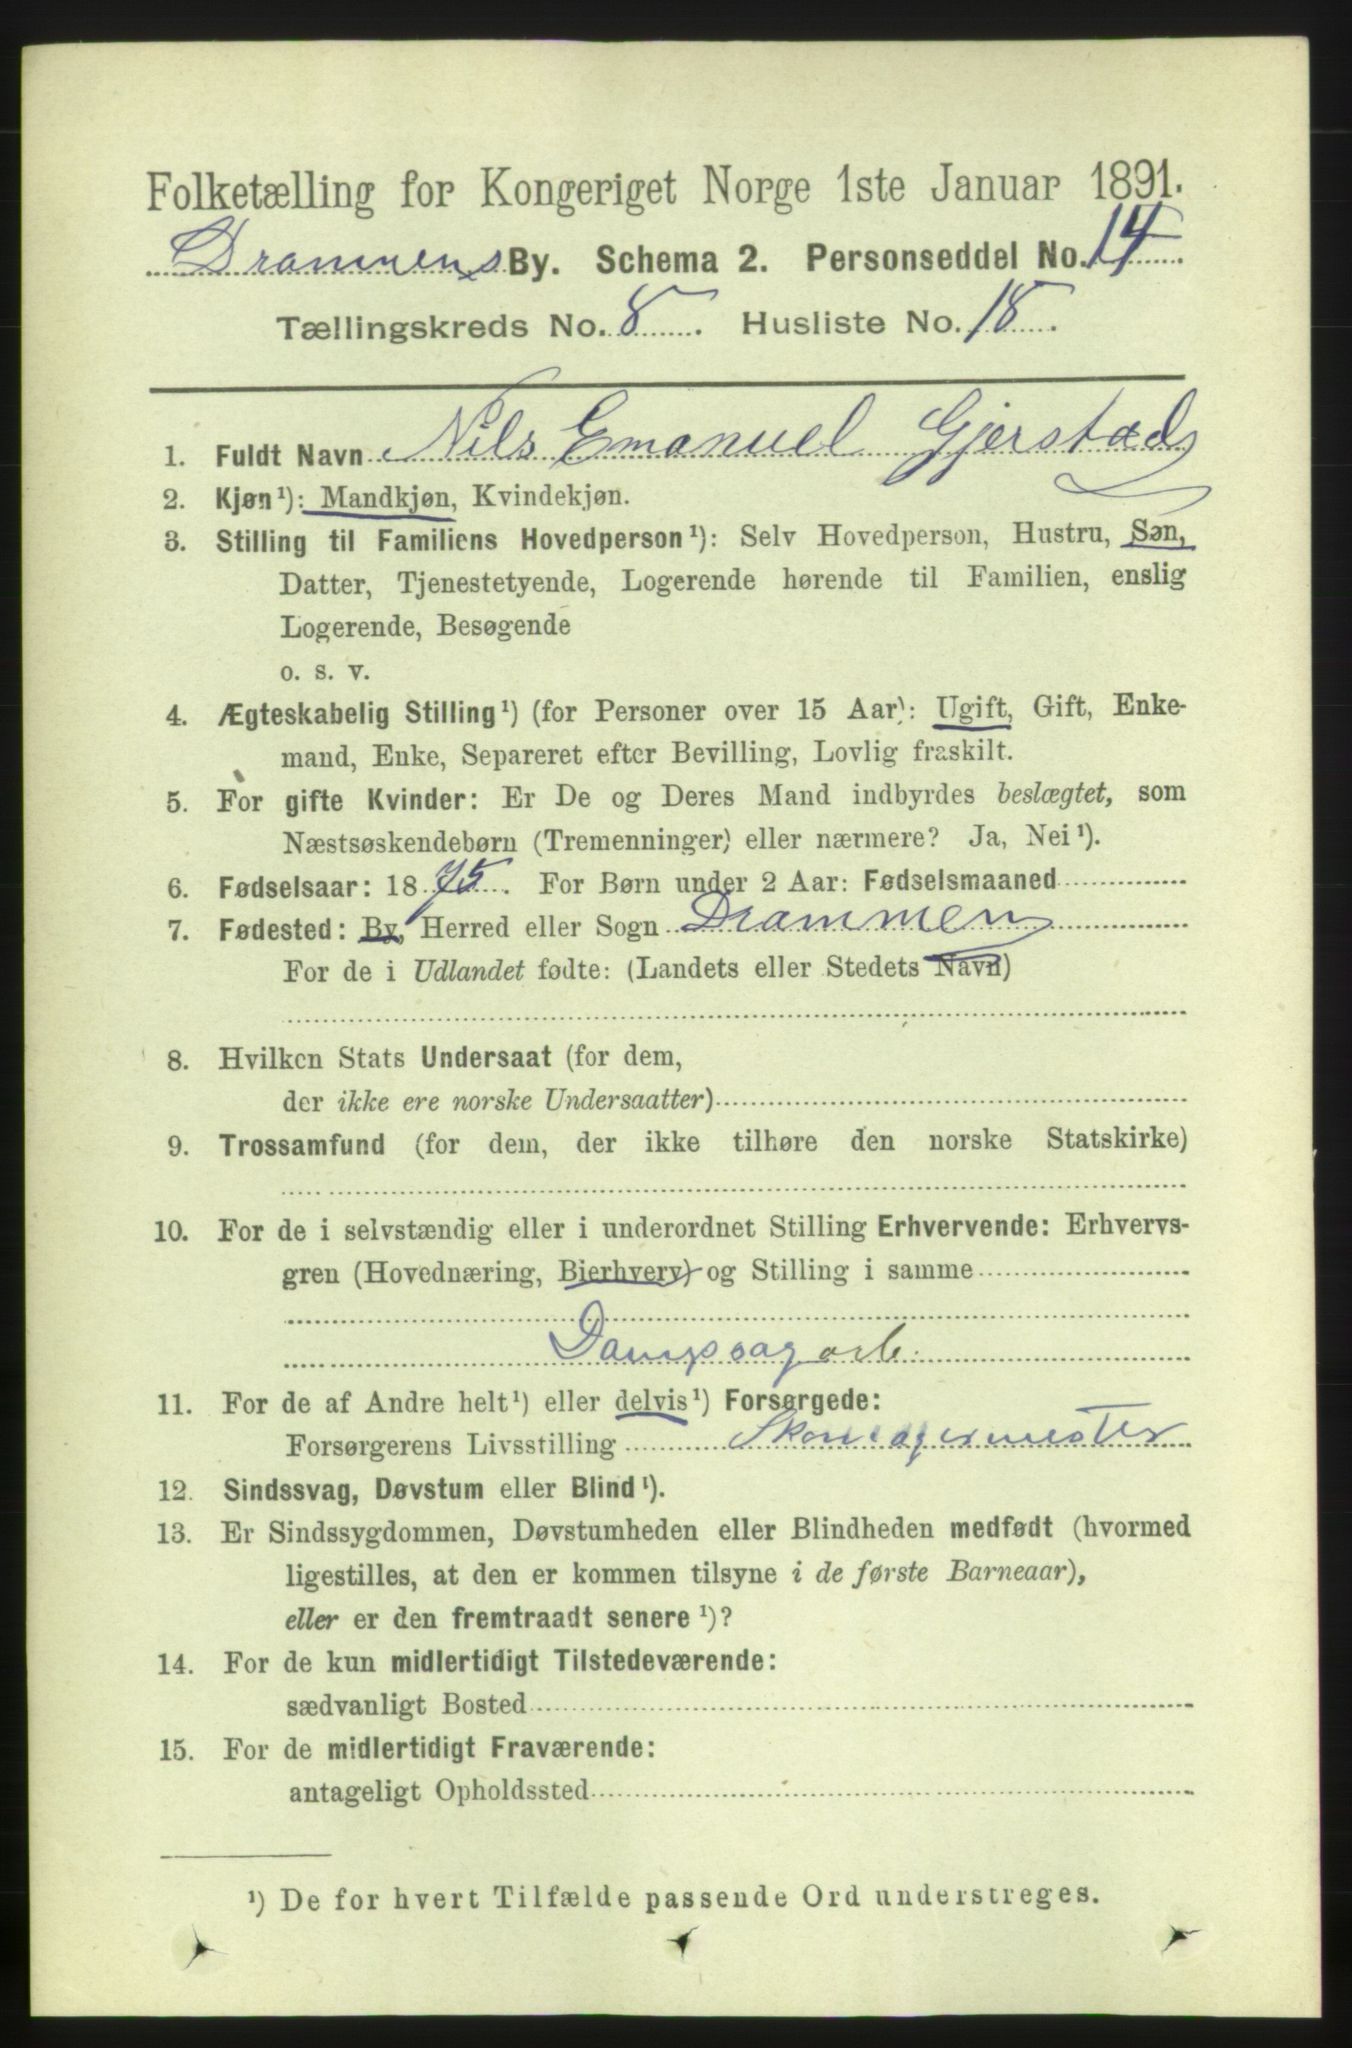 Folketælling for Kongeriget Norge 1ste Januar 1891.
Drammens By. Schema 2. Personseddel No. 14
Tællingskreds No. 8. Husliste No. 18.
1. Fuldt Navn Nils Emanuel Gjerstad
2. Kjøn¹): Mandkjøn, Kvindekjøn.
3. Stilling til Familiens Hovedperson¹): Selv Hovedperson, Hustru, Søn,
Datter, Tjenestetyende, Logerende hørende til Familien, enslig
Logerende, Besøgende
o. s. v.
4. Ægteskabelig Stilling¹) (for Personer over 15 Aar): Ugift, Gift, Enke-
mand, Enke, Separeret efter Bevilling, Lovlig fraskilt.
5. For gifte Kvinder: Er De og Deres Mand indbyrdes beslægtet, som
Næstsøskendebørn (Tremenninger) eller nærmere? Ja, Nei¹).
6. Fødselsaar: 1875. For Børn under 2 Aar: Fødselsmaaned
7. Fødested: By, Herred eller Sogn Drammen
For de i Udlandet fødte: (Landets eller Stedets Navn)
8. Hvilken Stats Undersaat (for dem,
der ikke ere norske Undersaatter)
9. Trossamfund (for dem, der ikke tilhøre den norske Statskirke)
10. For de i selvstændig eller i underordnet Stilling Erhvervende: Erhvervs-
gren (Hovednæring, Bierhverv) og Stilling i samme
Dampsagarb.
11. For de af Andre helt¹) eller delvis¹) Forsørgede:
Forsørgerens Livsstilling
12. Sindssvag, Døvstum eller Blind¹).
13. Er Sindssygdommen, Døvstumheden eller Blindheden medfødt (hvormed
ligestilles, at den er kommen tilsyne i de første Barneaar),
eller er den fremtraadt senere¹)?
14. For de kun midlertidigt Tilstedeværende:
sædvanligt Bosted
15. For de midlertidigt Fraværende:
antageligt Opholdssted
¹) De for hvert Tilfælde passende Ord understreges.